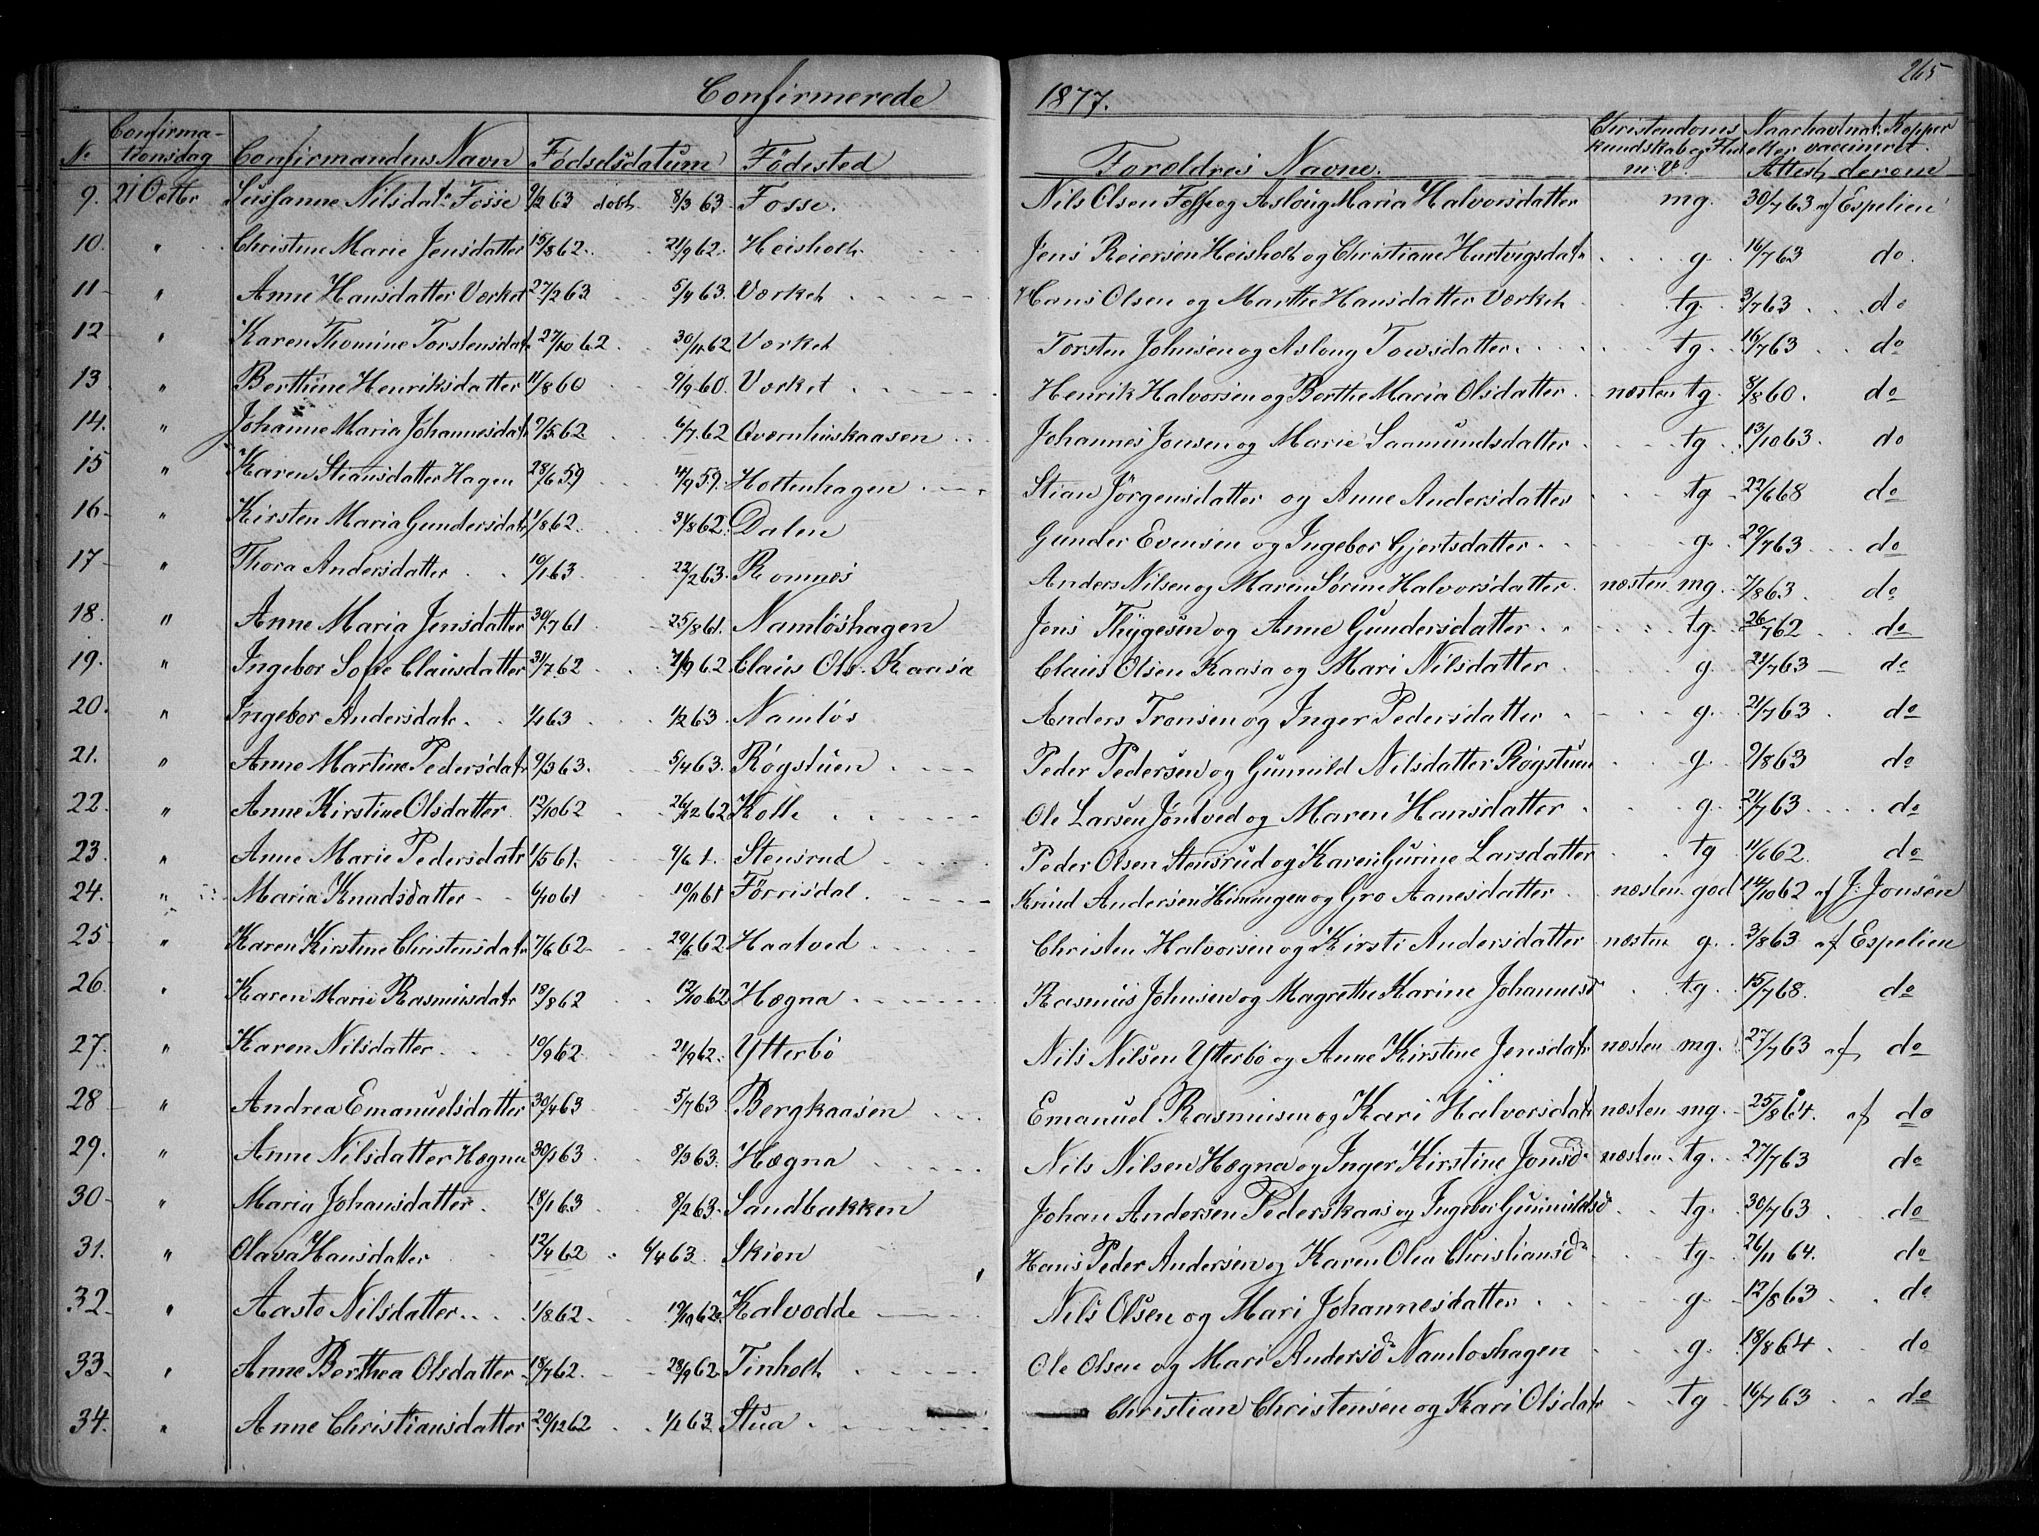 265
Confirmerede 1877.
No Confirmationsdag Confirmandens Navn Födselsdatum Födested Forældres Navne. Christendoms kundskab og Flid m. V. Naar havt nat. Kopper eller vaccineret. Attest derom
9. 21 Octbr Suisanne Nilsdatr Fosse 9/2 63 döbt 8/3 63 Fosse. Nils Olsen Fosse og Aslaug Maria Halvorsdatter mg. 30/7 63 af Espelien
10. " Christine Marie Jensdatter 15/8 62. 21/9 62. Heisholt Jens Reiersen Heisholt og Christiane Hartvigsdatr g. 16/7 63 do.
11 " Anne Hansdatter Værket 27/2 63 5/4 63. Værket Hans Olsen og Marthe Hansdatter Værket tg. 3/7 63 do
12 " Karen Thomine Torstensdatr 27/10 62 30/11 62 Værket Torsten Johnsen og Aslaug Towsdatter tg. 16/7 63 do
13 " Berthine Henriksdatter 11/8 60 9/9 60. Værket Henrik Halvorsen og Berthe Maria Olsdatter næsten tg. 8/8 60. do
14. " Johanne Maria Johannesdatr 9/5 62 6/7 62 Qvernhuskaasen Johannes Jonsen og Marie Saamundsdatter tg. 13/10 63. do
15 " Karen Stiansdatter Hagen 28/6 59 4/9 59. Holtenhagen Stian Jørgensdatter og Anne Andersdatter tg 22/6 68 do
16 " Kirsten Maria Gundersdatr 1/8 62. 31/8 62. Dalen Gunder Evensen og Ingebor Gjertsdatter g. 29/7 63 do
17 " Thora Andersdatter 10/1 63 22/2 63. Romnes Anders Nilsen og Maren Sørine Halvorsdatter næsten mg. 7/8 63. do
18. " Anne Maria Jensdatter 30/7 61 25/8 61. Namlöshagen Jens Thygesen og Anne Gundersdatter tg. 26/7 62 do
19. " Ingebor Sofie Clausdatter 31/7 62 7/9 62. Claus Ols. Kaasa Claus Olsen Kaasa og Mari Nilsdatter g. 21/7 63 do
20. " Ingebor Andersdatr. 1/1 63 1/2 63. Namlös Anders Tronsen og Inger Pedersdatter g. 21/7 63 do
21. " Anne Martine Pedersdatr 9/3 63. 5/4 63. Røgstuen Peder Pedersen og Gunuild Nilsdatter Røgstuen g. 9/8 63 do
22. " Anne Kirstine Olsdatter 12/10 62 26/12 62 Kolle Ole Larsen Jøntved og Maren Hansdatter g. 21/7 63 do
23. " Anne Marie Pedersdatr 1/5 61. 9/6 1. Stensrud Peder Olsen Stensrud og Karen Gurine Larsdatter tg 11/6 62. do
24. " Maria Knudsdatter 6/10 61 10/11 61 Førrisdal Knud Andersen Hiningen og Gro Aanesdatter næsten god 14/10 62 af J. Jonsøn
25 " Karen Kirstine Christensdatr 7/6 62 29/6 62 Haatved Christen Halvorsen og Kirsti Andersdatter næsten g. 3/8 63 af Espelien
26 " Karen Marie Rasmusdatr 18/8 62 12/10 62 Hægna Rasmus Johnsen og Magrethe Karine Johannesd tg. 15/7 68. do
27. " Karen Nilsdatter 10/9 62 21/9 62. Ytterbö Nils Nilsen Ytterbö og Anne Kirstine Jensdatr næsten mg. 27/7 63 af do
28 " Andrea Emanuelsdatter 30/4 63 5/7 63 Bergkaasen Emanuel Rasmusen og Kari Halvorsdatr næsten mg. 25/8 64. af do
29. " Anne Nilsdatter Hægna 30/1 63 8/3 63. Hægna Nils Nilsen Hægna og Inger Kirstine Jonsd. næsten tg. 27/7 63 do
30 " Maria Johansdatter. 18/1 63 8/2 63. Sandbakken Johan Andersen Pederskaas og Ingebor Gunuldsd. tg. 30/7 63 do
31. " Olava Hansdatter 12/4 62 6/4 63. Skien Hans Peder Andersen og Karen Olea Christiansdr tg. 26/11 64. do
32. " Aaste Nilsdatter. 1/8 62. 19/10 62. Kalvodde Nils Olsen og Mari Johannesdatter g. 12/8 63 do
33. " Anne Berthea Olsdatter 18/7 62. 28/9 62. Tinholt Ole Olsen og Mari Andersdr Namloshagen g. 18/8 64 do
34. " Anne Christiansdatter 20/12 62 1/1 63. Stua Christian Christensen og Kari Olsdatr tg 16/7 63 do